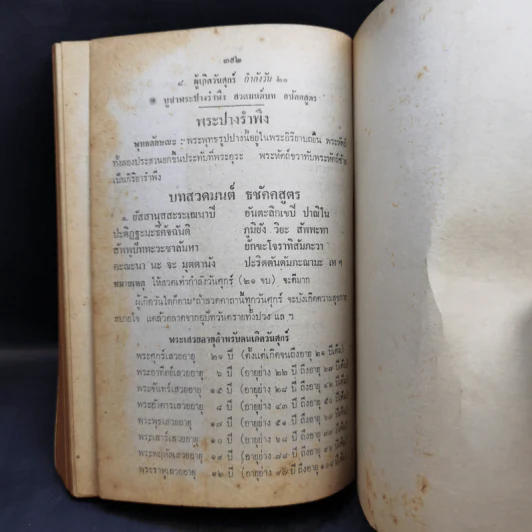 ๓๙๒
๘. ผู้เกิดวันศุกร์ กำลังวัน ๒๑
บูชาพระปางรำพึง สวดมนต์บท ธชัคคสูตร
พระปางรำพึง
พุทธลักษณะ : พระพุทธรูปปางนี้อยู่ในพระอิริยาบถยืน พระหัตถ์
ทั้งสองประสานยกขึ้นประทับที่พระอุระ พระหัตถ์ขวาทับพระหัตถ์ซ้าย
เป็นกิริยารำพึง
บทสวดมนต์ ธชัคคสูตร
๑. ยัสสานุสสะระเณนาปิ อันตะลิกเขปิ ปาณิโน
ปะติฏฐะมะธิคัจฉันติ ภูมิยัง วิยะ สัพพะทา
สัพพุปัททะวะชาลัมหา ยักขะโจราทิสัมภะวา
คะณะนา นะ จะ มุตตานัง ปะริตตันตัมภะณามะ เห ฯ
หมายเหตุ ให้สวดเท่ากำลังวันศุกร์ (๒๑ จบ) จะดีมาก
ผู้เกิดวันใดก็ตาม ถ้าสวดคาถานี้ทุกวันศุกร์ จะบังเกิดความสุขกาย
สบายใจ แคล้วคลาดจากอุบัทวันตรายทั้งปวง แล ฯ
พระเสวยอายุสำหรับคนเกิดวันศุกร์
พระศุกร์เสวยอายุ ๒๑ ปี (ตั้งแต่เกิดจนถึงอายุ ๒๑ ปีเต็ม)
พระอาทิตย์เสวยอายุ ๖ ปี (อายุย่าง ๒๒ ปี ถึงอายุ ๒๗ ปีเต็ม)
พระจันทร์เสวยอายุ ๑๕ ปี (อายุย่าง ๒๘ ปี ถึงอายุ ๔๒ ปีเต็ม)
พระอังคารเสวยอายุ ๘ ปี (อายุย่าง ๔๓ ปี ถึงอายุ ๕๐ ปีเต็ม)
พระพุธเสวยอายุ ๑๗ ปี (อายุย่าง ๕๑ ปี ถึงอายุ ๖๗ ปีเต็ม)
พระเสาร์เสวยอายุ ๑๐ ปี (อายุย่าง ๖๘ ปี ถึงอายุ ๗๗ ปีเต็ม)
พระพฤหัสเสวยอายุ ๑๙ ปี (อายุย่าง ๗๘ ปี ถึงอายุ
พระราหูเสวยอายุ ๑๒ ปี (อายุย่าง ๙๗ ปี ถึงอายุ